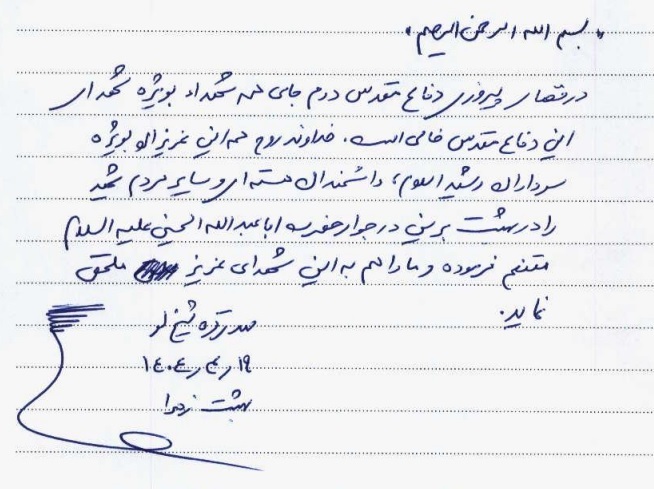 بسم الله الرحمن الرحیم
در فضای پیروزی دفاع مقدس دوم جای همه شهداء بویژه شهدای
این دفاع مقدس خالی است. خداوند روح همه این عزیزان و بویژه
سرداران رشید اسلام، دانشمندان هسته ای و سایر مردم شهید
را در بهشت برین در جوار حضرت اباعبدالله الحسین علیه السلام
متنعم فرموده و ما را هم به این شهدای عزیز ملحق
نماید.
۱۴۰۴٫۴٫۱۹
بهشت زهرا